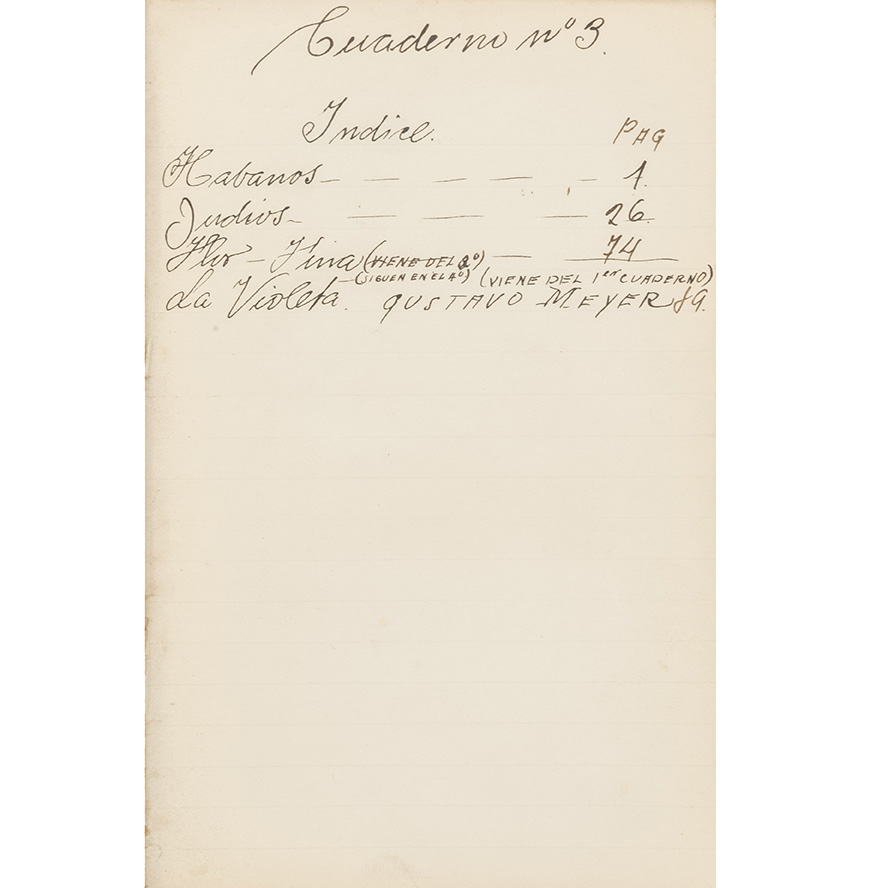 Cuaderno nº 3.
Indice. PAG
Habanos — — — — — 1.
Judios — — — — 26
Flor - Fina (VIENE DEL 2º) — 74
(SIGUEN EN EL 4º) (VIENE DEL 1er CUADERNO)
La Violeta. GUSTAVO MEYER 89.